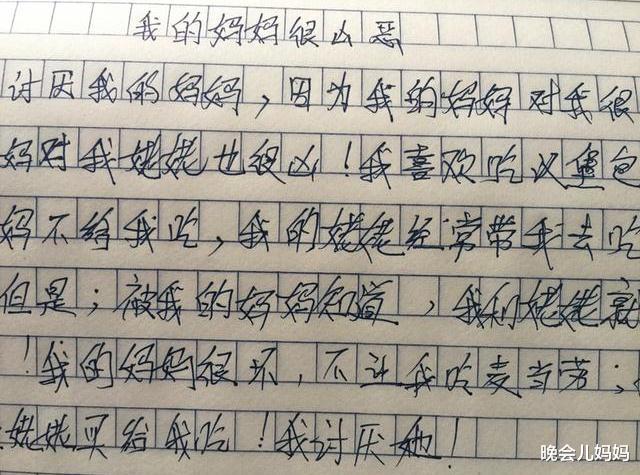 我的妈妈很凶恶
讨厌我的妈妈，因为我的妈妈对我很
妈对我姥姥也很凶！我喜欢吃汉堡包
妈不给我吃，我的姥姥经常带我去吃
但是；被我的妈妈知道，我和姥姥就
！我的妈妈很坏，不让我吃麦当劳；
姥姥买给我吃！我讨厌她！
晚会儿妈妈